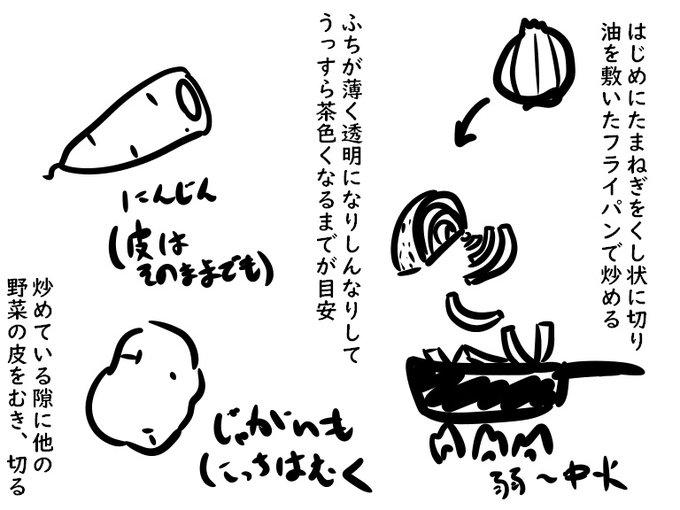 はじめにたまねぎをくし状に切り
油を敷いたフライパンで炒める
弱〜中火
ふちが薄く透明になりしんなりして
うっすら茶色くなるまでが目安
にんじん
(皮は
そのままでも)
じゃがいも
(こっちはむく
炒めている隙に他の
野菜の皮をむき、切る